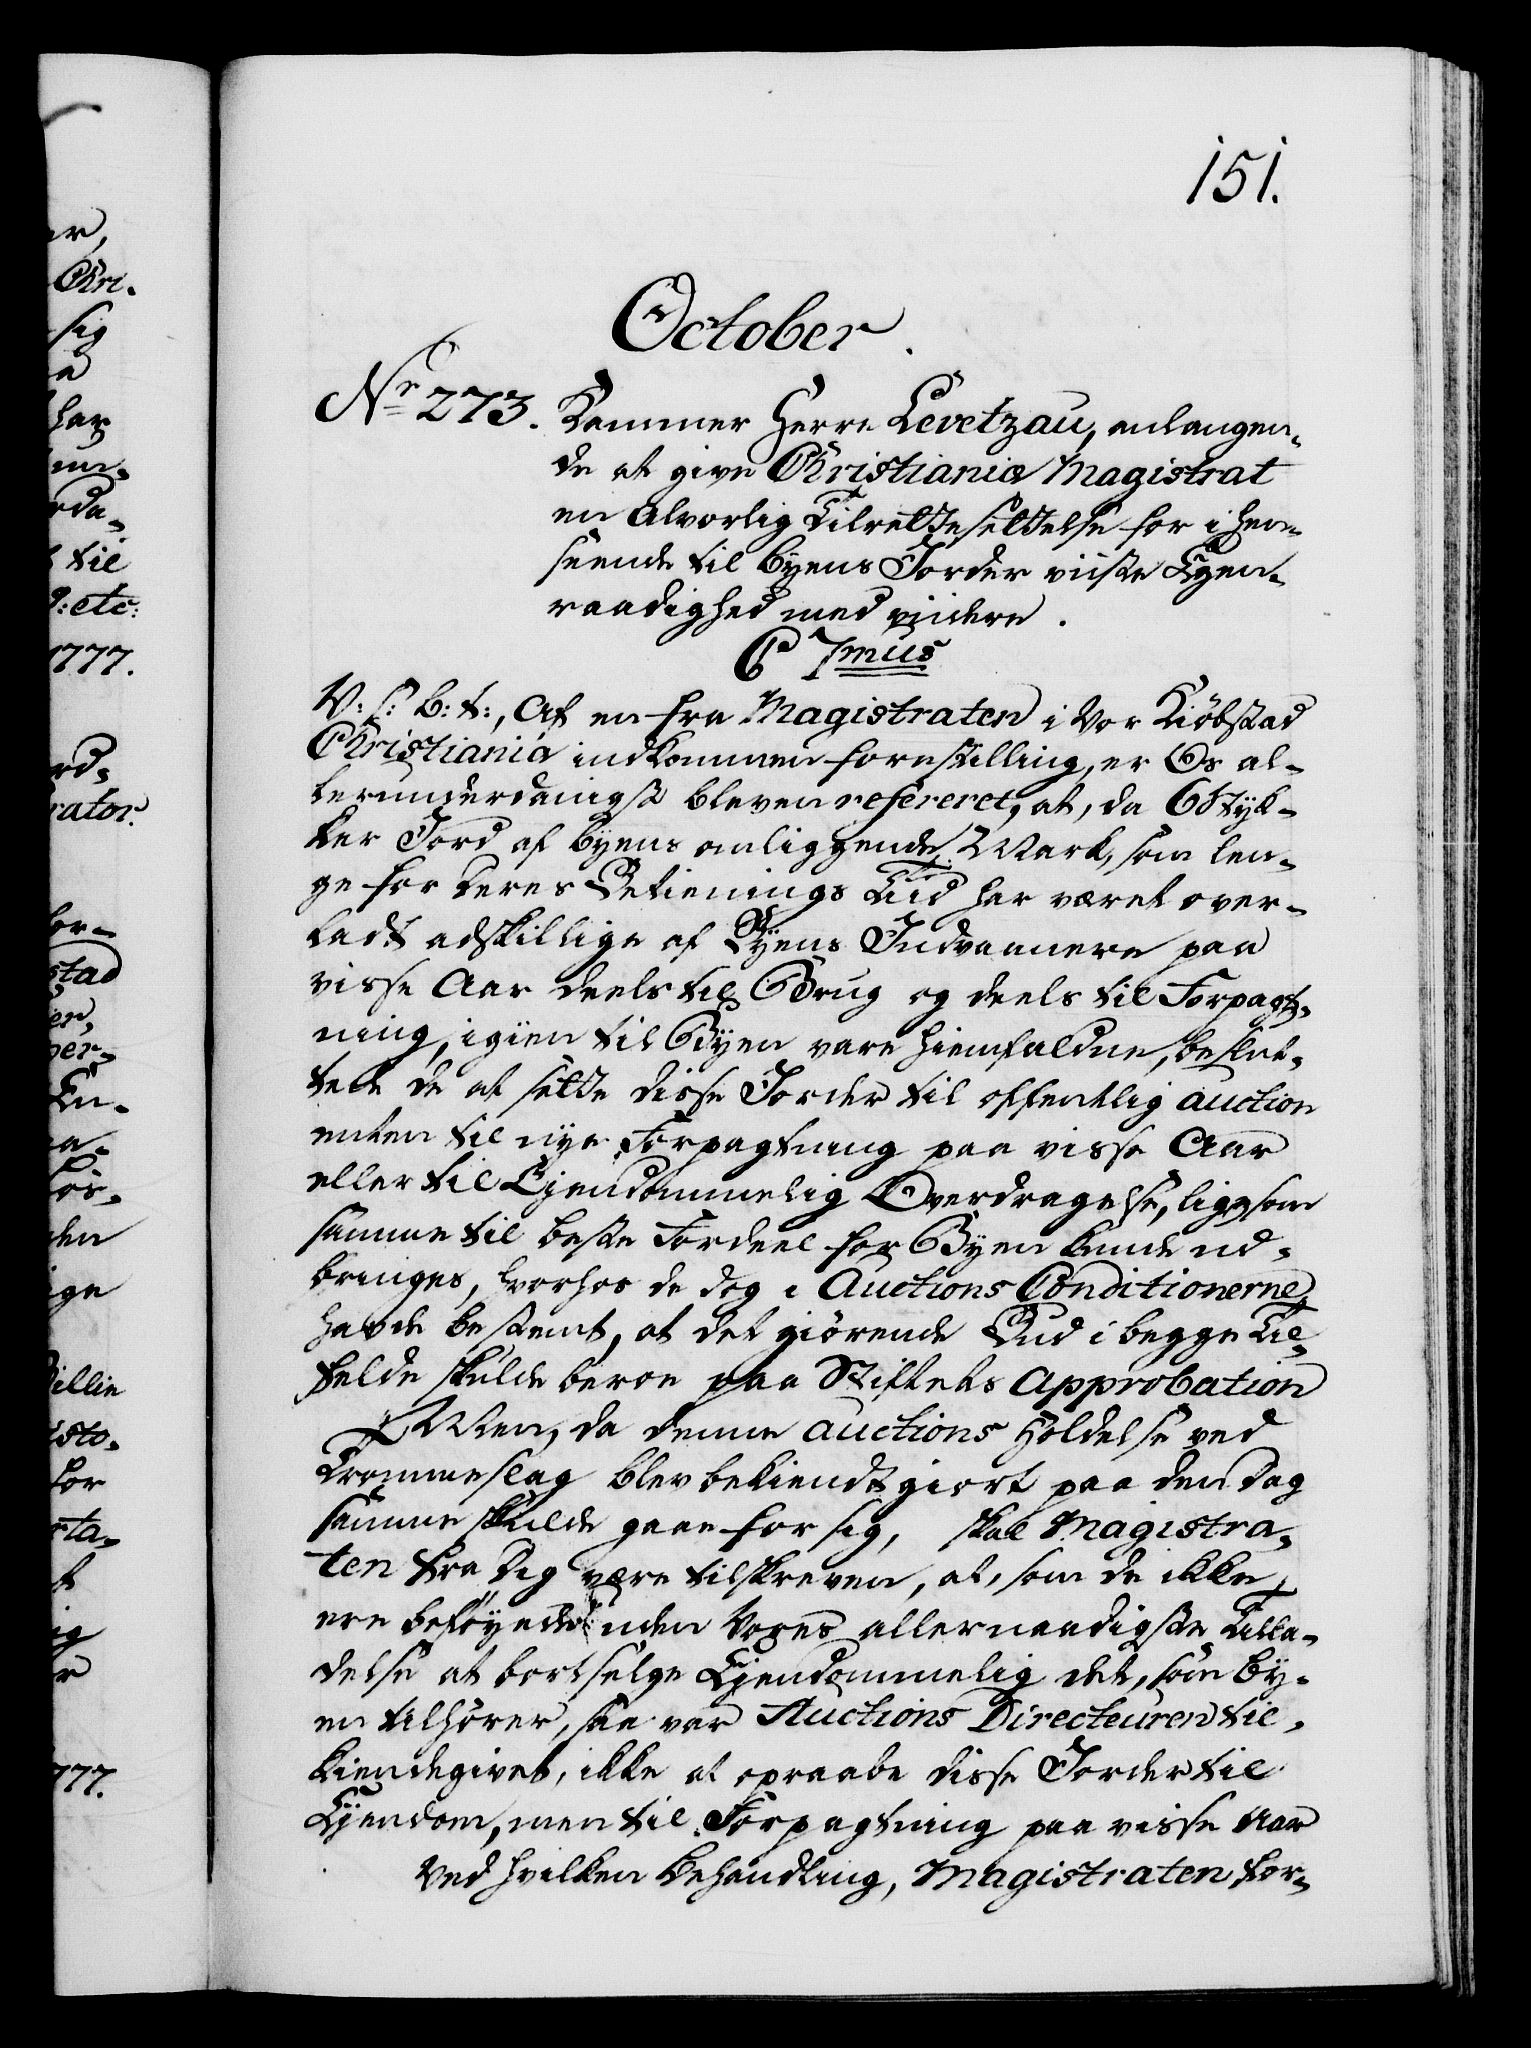 151.
October.
Nr 273. Kammer Herre Levetzau, anlangen-
de at give Christiania Magistrat
en Alvorlig Tilrettesettelse for i hen-
seende til Byens Jorder viiste Egen-
raadighed med viidere.
C 7mus
V: s: B: t:, Af en fra Magistraten i Vor Kiöbstad
Christiania indkommen forestilling, er Os al-
lerunderdanigst bleven refereret, at, da 6 Styk-
ker Jord af Byens omliggende Mark, som len-
ge for deres Betienings Tiid har været over-
ladt adskillige af Byens Indvaanere paa
visse Aar deels til Brug og deels til Forpagt-
ning, igien til Byen vare hiemfaldne, beslut-
tede de at sette disse Jorder til offentlig auction
enten til nye Forpagtning paa visse Aar
eller til Ejendommelig Overdragelse, ligesom
samme til beste Fordeel for Byen kunde ud-
bringes, hvorhos de dog i Auctions Conditionerne
havde bestemt, at det giörende Bud i begge Til-
felde skulde beroe paa Stiftets Approbation
Men, da denne auctions Holdelse ved
Trommeslag blev bekiendtgiort paa den Dag
samme skulde gaae for sig, skal Magistra-
ten fra Dig være tilskreven, at, som de ikke
ere beföyede uden Vores allernaadigste Tilla-
delse at bortselge Ejendommelig det, som By-
en tilhörer, saa var Auctions Directeuren til-
kiendegivet, ikke at opraabe disse Jorder til
Ejendom, men til Forpagtning paa visse Aar
Ved hvilken Behandling, Magistraten for-